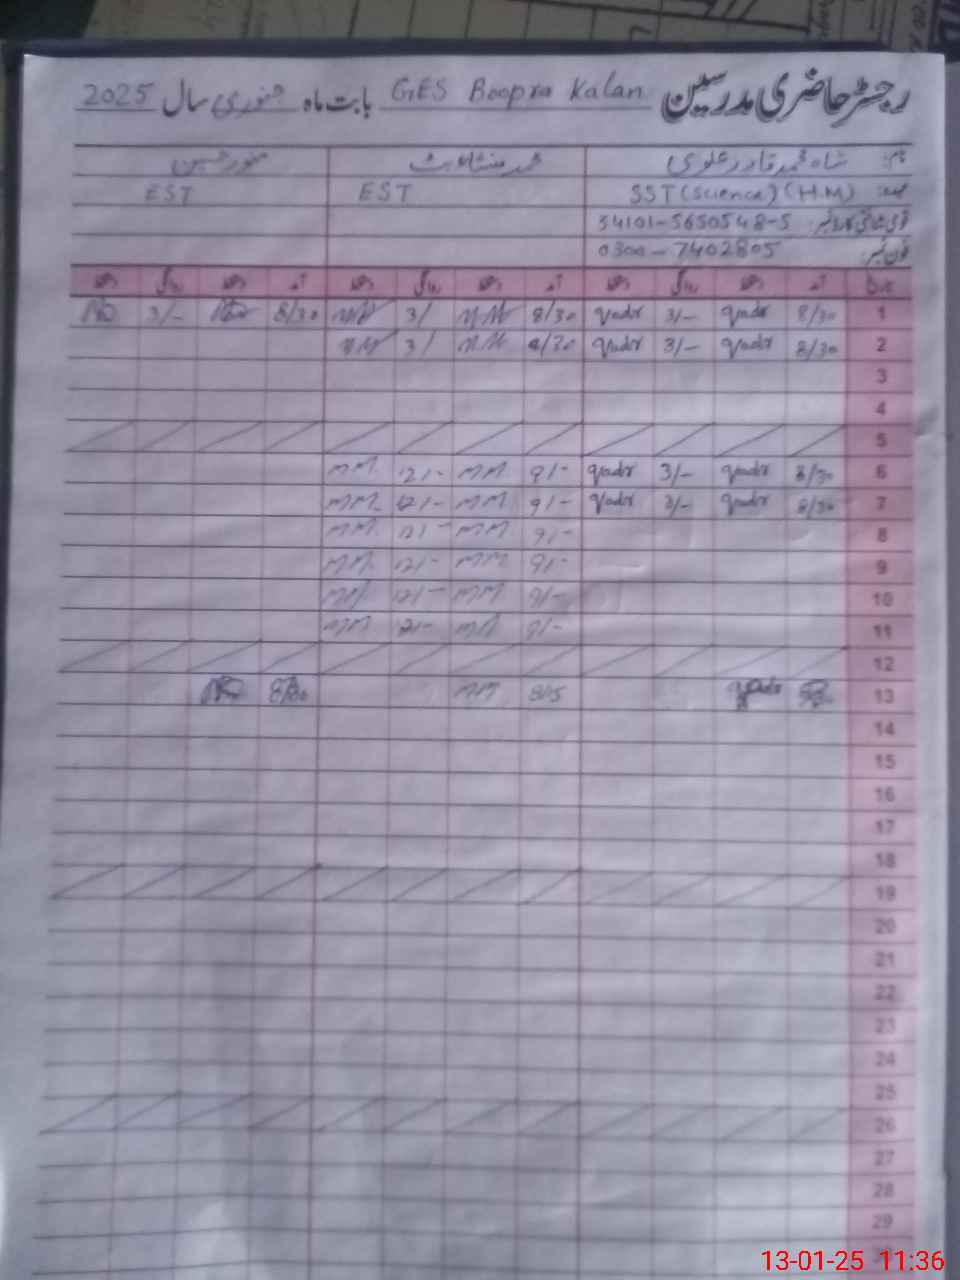 رجسٹر حاضری مدرسین GES Boopra Kalan بابت ماہ جنوری سال 2025
نام: شاہ محمد قادر علوی محمد منشاء بٹ منور حسین
عہدہ: SST (Science) (H.M) EST EST
قومی شناختی کارڈ نمبر: 34101-5650548-5
فون نمبر: 0300-7402805
تاریخ آمد دستخط روانگی دستخط آمد دستخط روانگی دستخط آمد دستخط روانگی دستخط
1 8/30 qadr 3/- qadr 8/30 MM 3/ MM 8/30 3/-
2 8/30 qadr 3/- qadr 8/30 MM 3/ MM
3
4
5
6 8/30 qadr 3/- qadr 9/- MM 12/- MM
7 8/30 qadr 3/- qadr 9/- MM 12/- MM
8 9/- MM 12/- MM
9 9/- MM 12/- MM
10 9/- MM 12/- MM
11 9/- MM 12/- MM
12
13 qadr MM 8/30
14
15
16
17
18
19
20
21
22
23
24
25
26
27
28
29
13-01-25 11:36